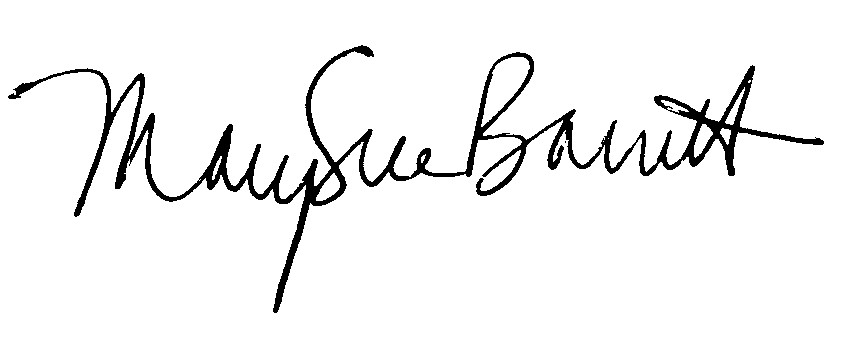 Mary Sue Barrett